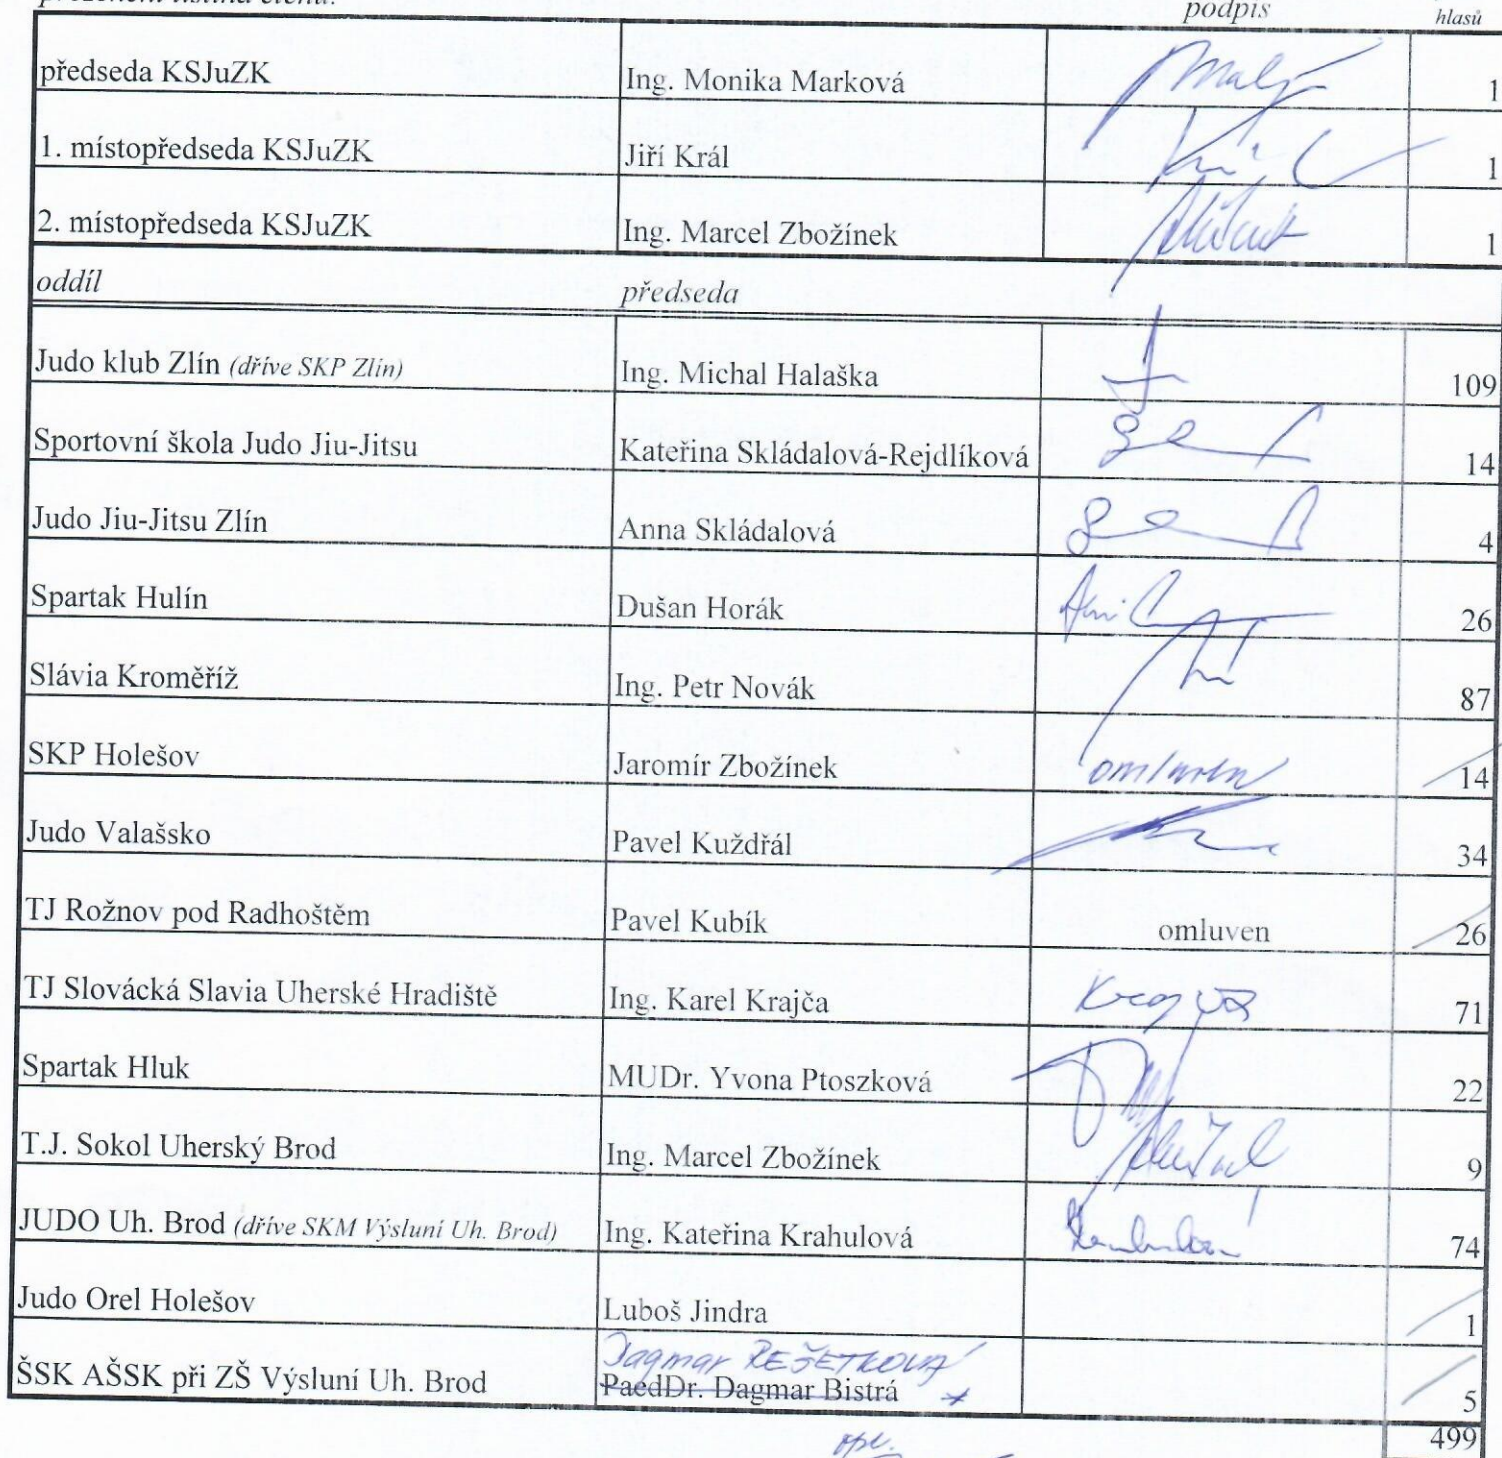 prezenční listina členů:
podpis
hlasů
předseda KSJuZK Ing. Monika Marková 1
1. místopředseda KSJuZK Jiří Král 1
2. místopředseda KSJuZK Ing. Marcel Zbožínek 1
oddíl předseda
Judo klub Zlín (dříve SKP Zlín) Ing. Michal Halaška 109
Sportovní škola Judo Jiu-Jitsu Kateřina Skládalová-Rejdlíková 14
Judo Jiu-Jitsu Zlín Anna Skládalová 4
Spartak Hulín Dušan Horák 26
Slávia Kroměříž Ing. Petr Novák 87
SKP Holešov Jaromír Zbožínek omluven 14
Judo Valašsko Pavel Kuždřál 34
TJ Rožnov pod Radhoštěm Pavel Kubík omluven 26
TJ Slovácká Slavia Uherské Hradiště Ing. Karel Krajča 71
Spartak Hluk MUDr. Yvona Ptoszková 22
T.J. Sokol Uherský Brod Ing. Marcel Zbožínek 9
JUDO Uh. Brod (dříve SKM Výsluní Uh. Brod) Ing. Kateřina Krahulová 74
Judo Orel Holešov Luboš Jindra 1
Dagmar ŘEŠETKOVÁ
ŠSK AŠSK při ZŠ Výsluní Uh. Brod PaedDr. Dagmar Bistrá 5
499